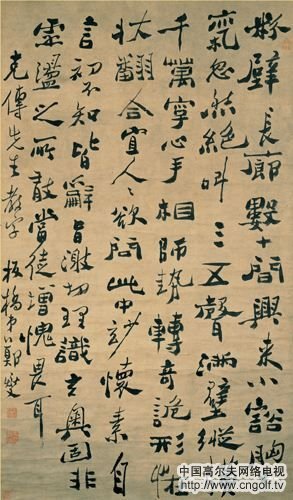 粉壁長廊數十間興來小豁胸
氣忽然絕叫三五聲滿壁縱
千萬字心手相師勢轉奇詭形怪
狀翻合宜人人欲問此中妙懷素自
言初不知皆辭旨激切理識玄奧固非
虛蕩之所敢當徒增愧畏耳
克傳先生教字 板橋弟鄭燮
中国高尔夫网络电视
www.cngolf.tv